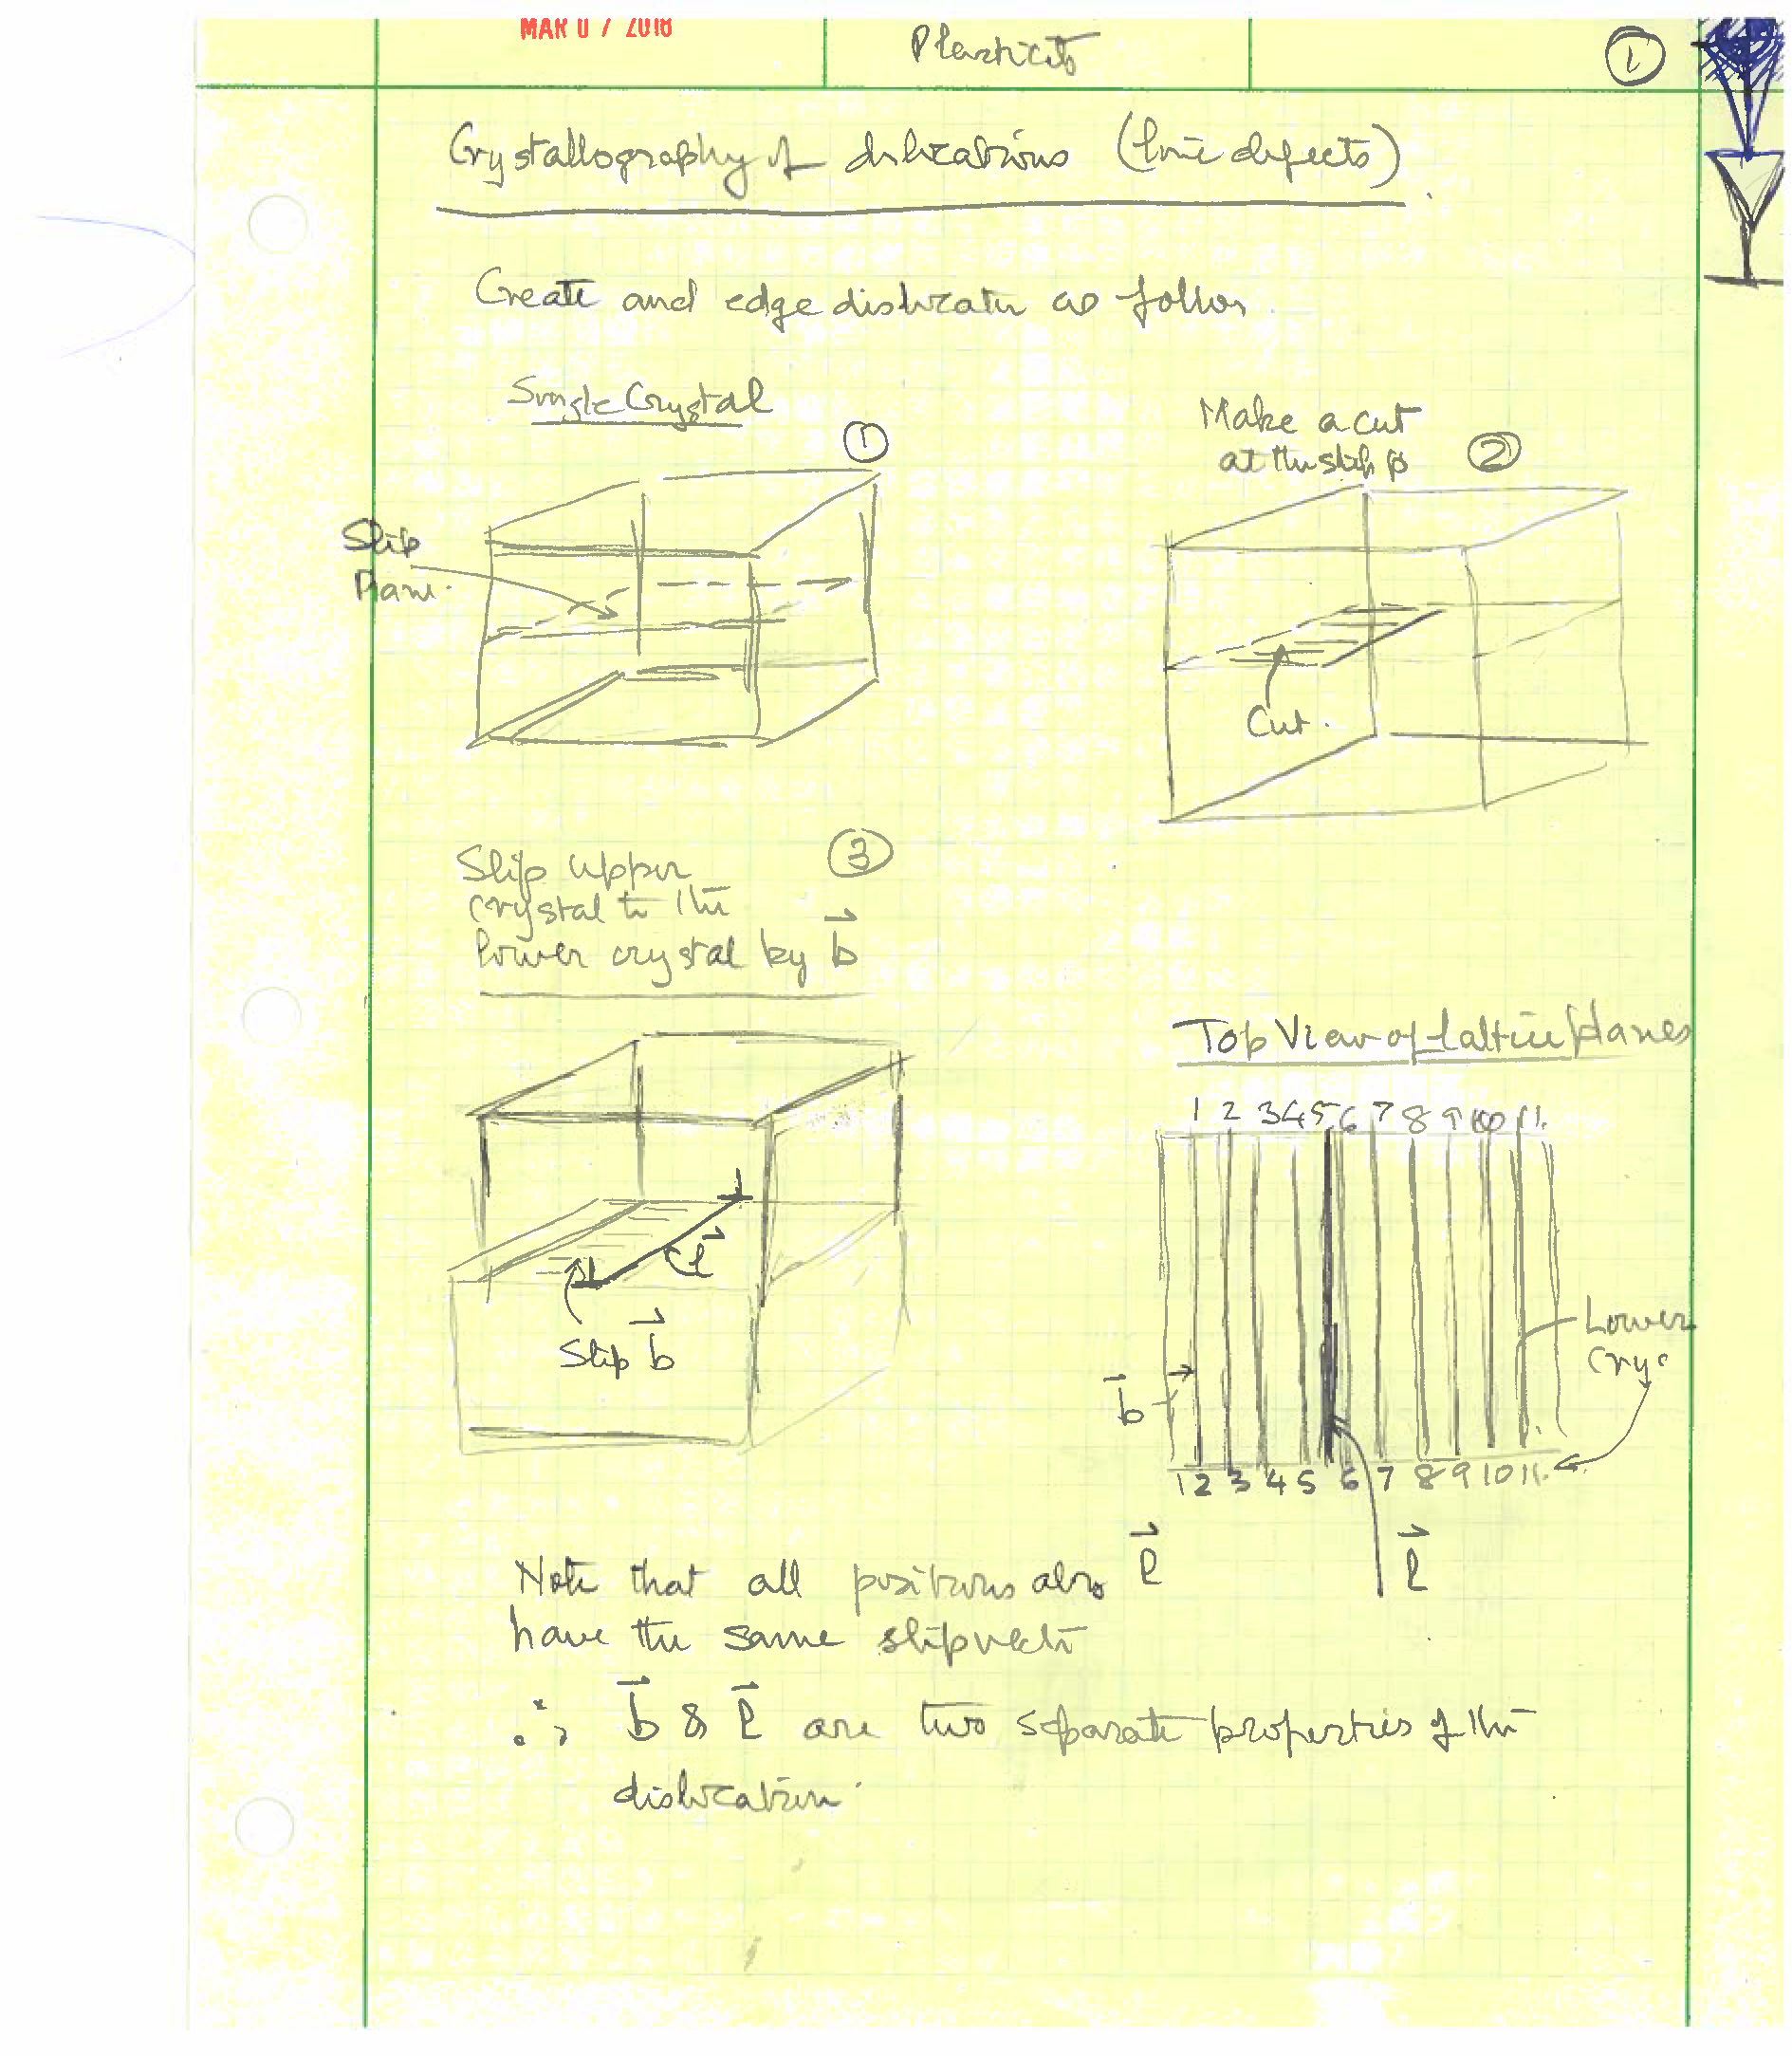 MAR 07 2018
Plasticity
1
Crystallography of dislocations (line defects)
Create and edge dislocatn as follow
Single Crystal
1
Slip
Plane.
Make a cut
at the slip p
2
Cut.
Slip upper
crystal to the
lower crystal by b
3
Slip b
l
Top View of lattice planes
1 2 3 4 5 6 7 8 9 10 11.
b
Lower
Crys
1 2 3 4 5 6 7 8 9 10 11.
l
Note that all positions along l
have the same slip vector
∴ b & l are two separate properties of the
dislocation.